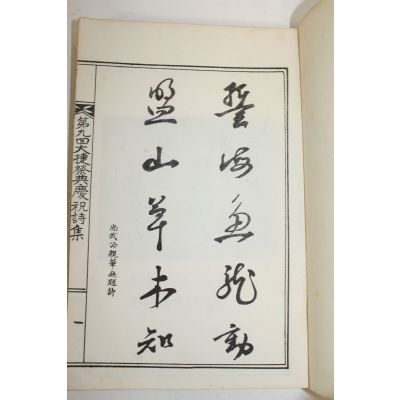 誓海魚龍動
盟山草木知
忠武公親筆無題詩
第九回大捷祭典慶祝詩集
一